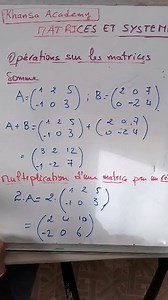 Khansa Academy
MATRICES ET SYSTEM
Opérations sur les matrices
Somme
A = ( 1 2 5 ; B = ( 2 0 7
-1 0 3 ) 0 -2 4 )
A + B = ( 1 2 5 + ( 2 0 7
-1 0 3 ) 0 -2 4 )
= ( 3 2 12
-1 -2 7 )
Multiplication d'une matrice par un
2.A = 2. ( 1 2 5
-1 0 3 )
= ( 2 4 10
-2 0 6 )